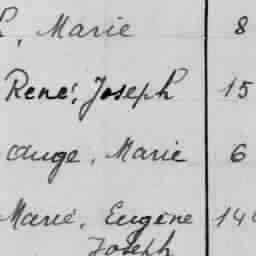 , Marie 8
René, Joseph 15
Ange, Marie 6
Marie, Eugène 14
Joseph